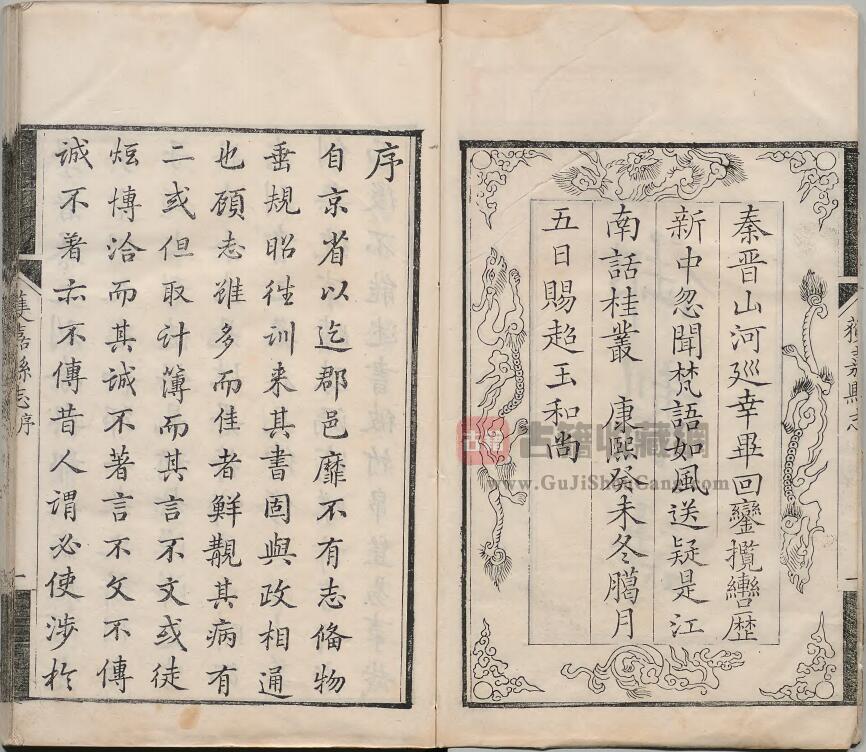 秦晋山河廵幸畢回鑾攬轡歴
新中忽聞梵語如風送疑是江
南話桂叢　康熙癸未冬臈月
五日賜超玉和尚
獲嘉縣志
序
自京省以迄郡邑靡不有志俻物
垂規昭徃訓来其書固與政相通
也頋志雖多而佳者鮮覯其病有
二或但取计薄而其言不文或徒
炫博洽而其誠不著言不文不傳
誠不著亦不傳昔人謂必使涉於
獲嘉縣志序
一
古籍收藏網
www.GuJiShouCang.com